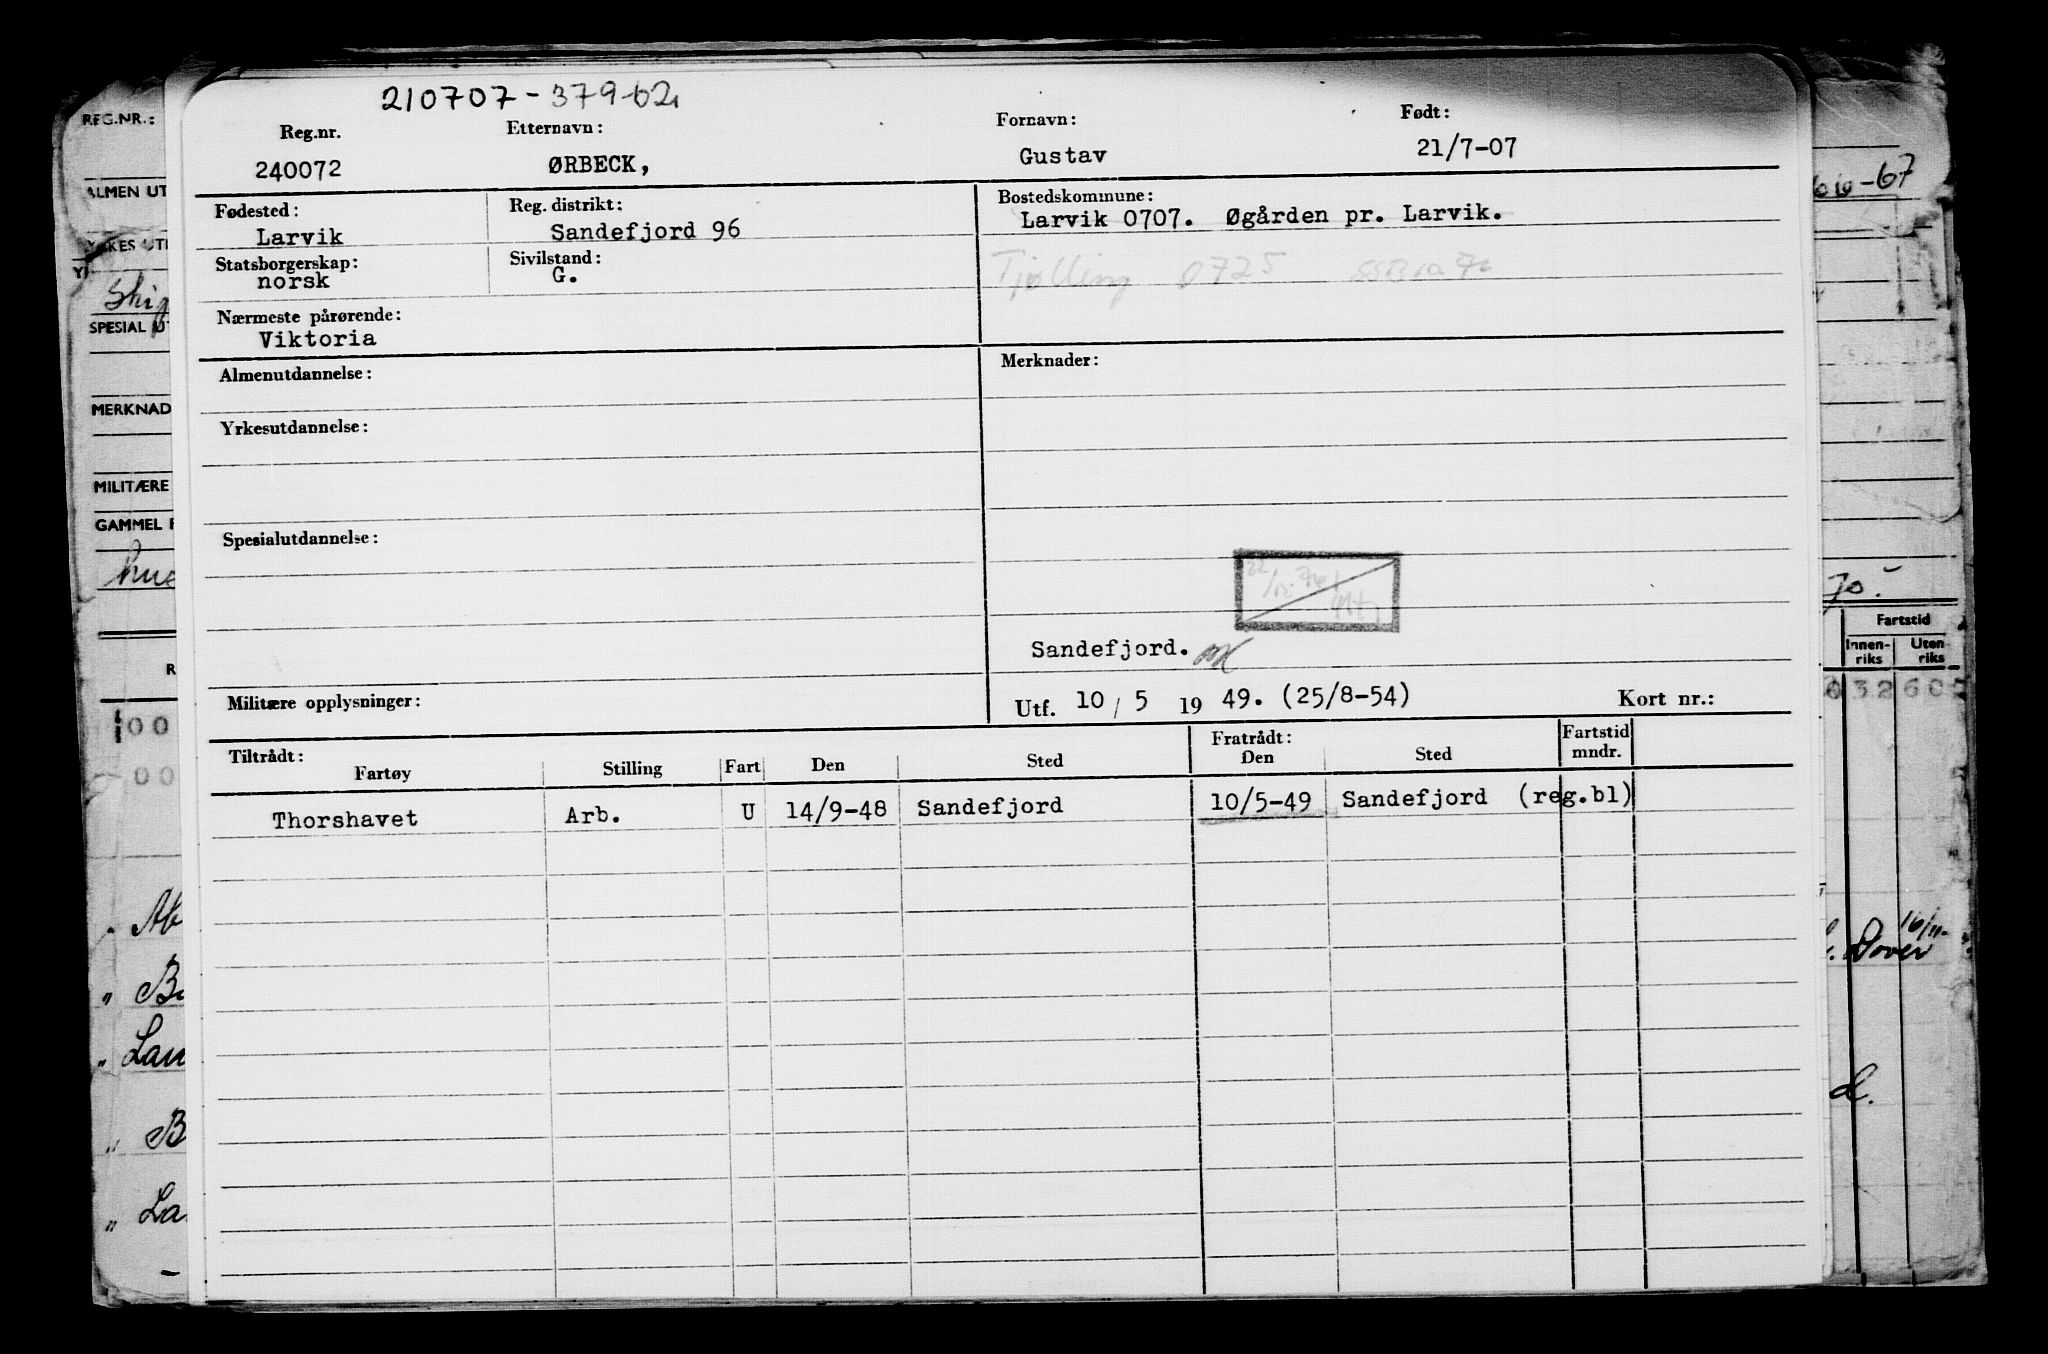 210707-37962
Reg.nr. Etternavn: Fornavn: Født:
240072 ØRBECK, Gustav 21/7-07
Fødested: Reg. distrikt: Bostedskommune:
Larvik Sandefjord 96 Larvik 0707. Øgården pr. Larvik.
Statsborgerskap: Sivilstand:
norsk G. Tjølling 0725
Nærmeste pårørende:
Viktoria
Almenutdannelse: Merknader:
Yrkesutdannelse:
Spesialutdannelse:
Sandefjord.
Militære opplysninger: Utf. 10/5 1949. (25/8-54) Kort nr.:
Tiltrådt: Fratrådt: Fartstid
Fartøy Stilling Fart Den Sted Den Sted mndr.
Thorshavet Arb. U 14/9-48 Sandefjord 10/5-49 Sandefjord (reg.bl)
REG.NR.:
ALMEN UT
SPESIAL UT
MERKNAD
MILITÆRE
GAMMEL
-67
70.
Fartstid
Innen-riks Uten-riks
3260
00
00
Dover 16/11-
d.